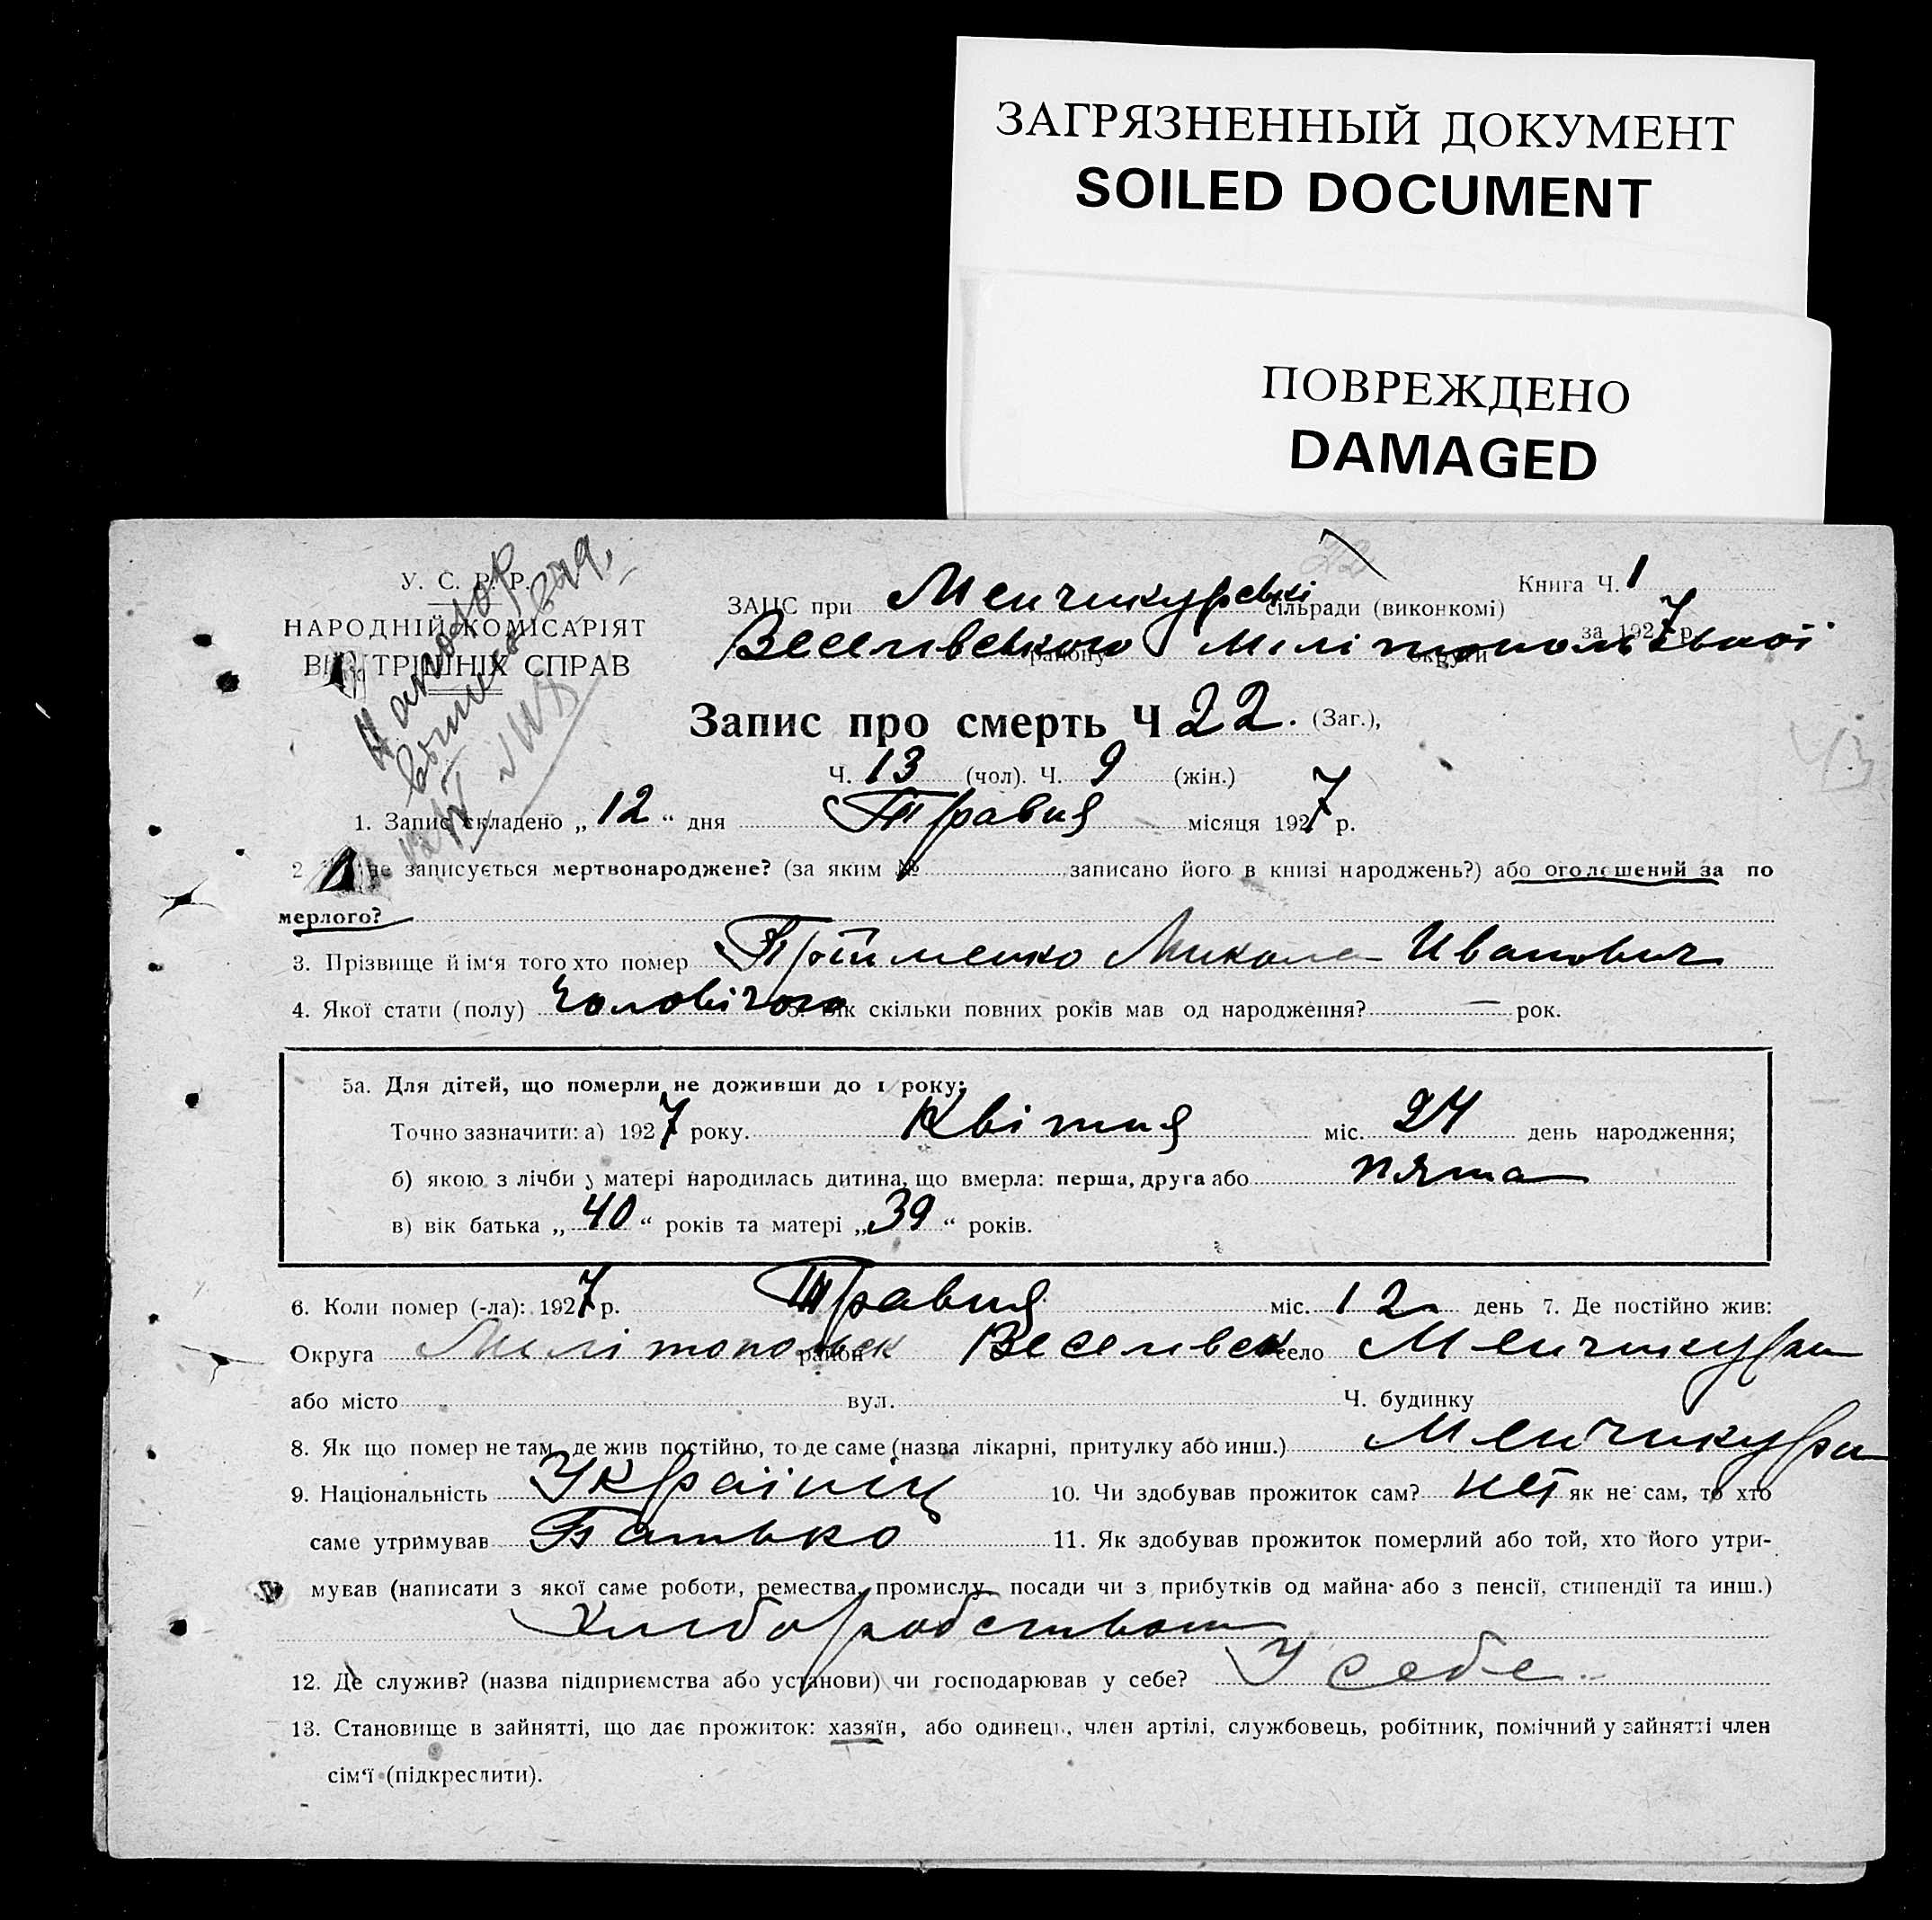 ЗАГРЯЗНЕННЫЙ ДОКУМЕНТ
SOILED DOCUMENT
ПОВРЕЖДЕНО
DAMAGED
22
У. С. Р. Р.
НАРОДНІЙ КОМІСАРІЯТ
ВНУТРІШНІХ СПРАВ
ЗАПС при Менчикурській сільради (виконкомі)
Книга Ч. 1
за 1927 р.
Веселівського району Мелітопольської округи
Запис про смерть Ч 22. (Заг.),
Ч. 13 (чол). Ч. 9 (жін.)
1. Запис складено „ 12 “ дня Травня місяця 1927 р.
2 не записується мертвонароджене? (за яким № записано його в книзі народжень?) або оголошений за по
мерлого?
3. Прізвище й ім‘я того хто помер Микола Иванович
4. Якої стати (полу) Чоловічого 5. Вік скільки повних років мав од народження? — рок.
5а. Для дітей, що померли не доживши до 1 року:
Точно зазначити: а) 1927 року. Квітня міс. 24 день народження;
б) якою з лічби у матері народилась дитина, що вмерла: перша, друга або пята
в) вік батька „ 40 “ років та матері „ 39 “ років.
6. Коли помер (-ла): 1927 р. Травня міс. 12 день 7. Де постійно жив:
Округа Мелітопольск район Веселивск село Менчикури
або місто вул. Ч. будинку
8. Як що помер не там, де жив постійно, то де саме (назва лікарні, притулку або инш.) Менчикури
9. Національність Україниц 10. Чи здобував прожиток сам? нет як не сам, то хто
саме утримував Батько 11. Як здобував прожиток померлий або той, хто його утри-
мував (написати з якої саме роботи, ремества, промислу, посади чи з прибутків од майна або з пенсії, стипендії та инш.)
Хлиборобством
12. Де служив? (назва підприємства або установи) чи господарював у себе? У себе.
13. Становище в зайнятті, що дає прожиток: хазяїн, або одинець, член артілі, службовець, робітник, помічний у зайнятті член
сім‘ї (підкреслити).